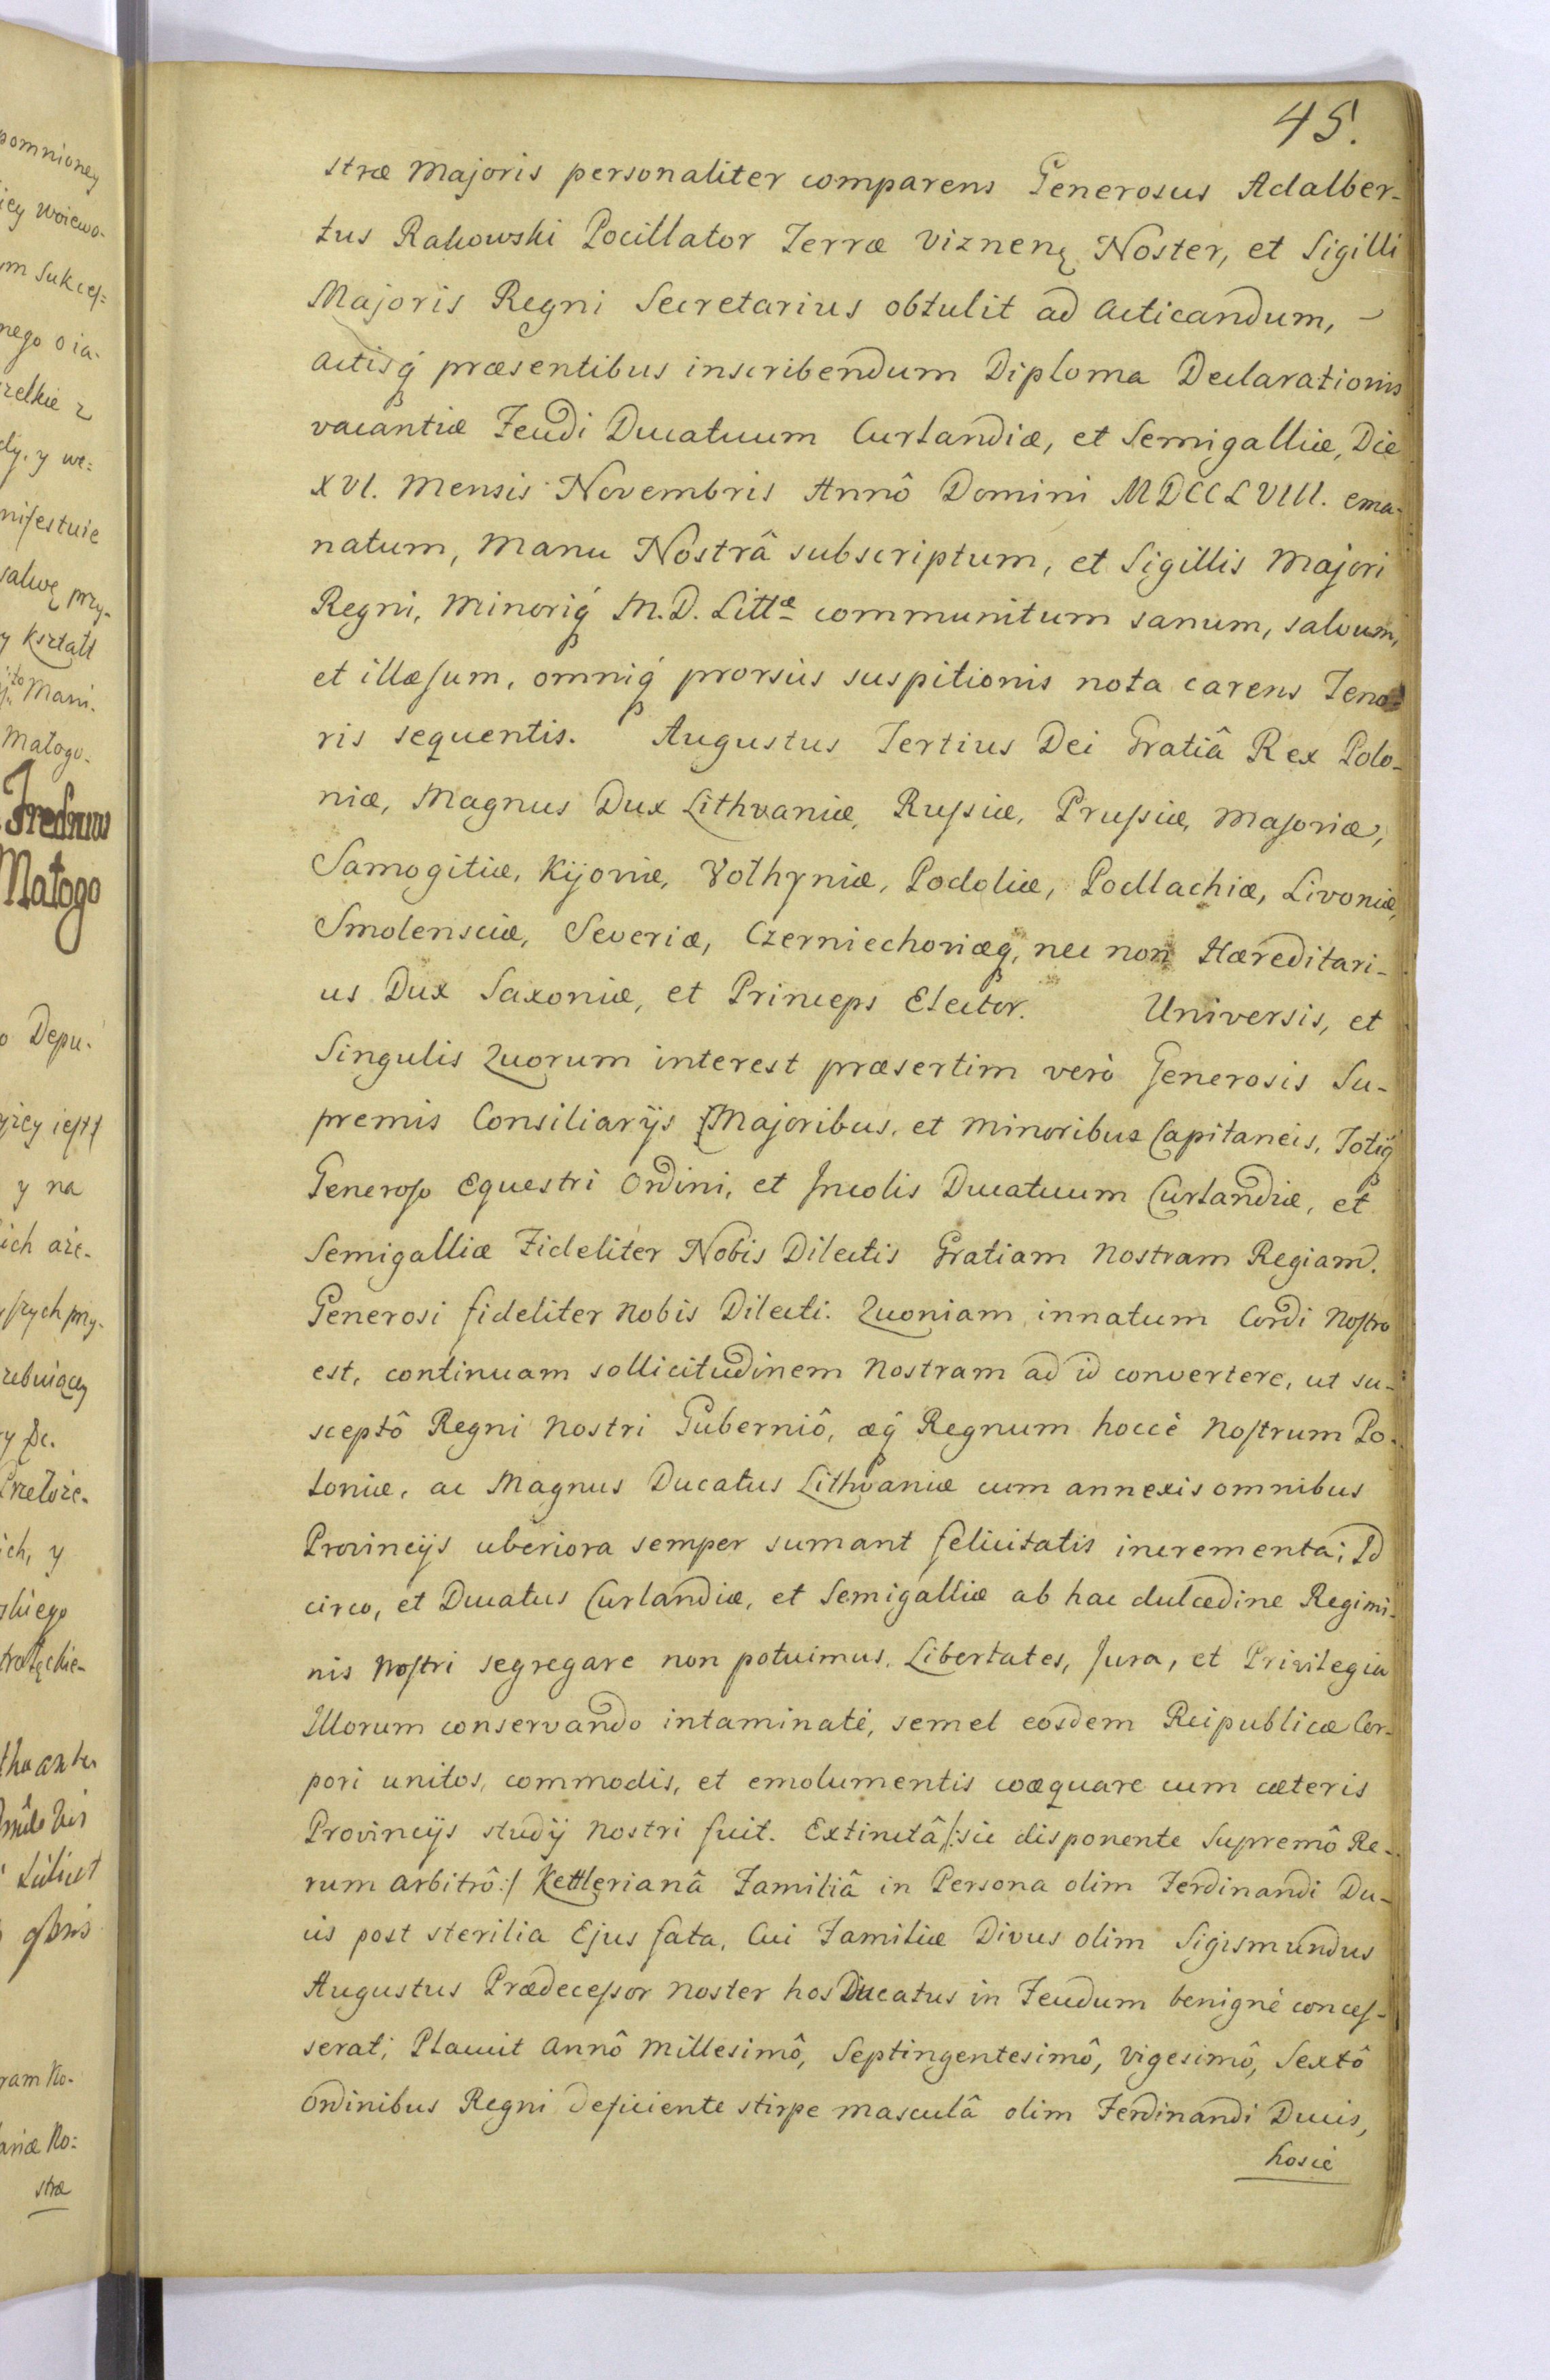 45.
stræ Majoris personaliter comparens Generosus Adalber-
tus Rakowski Pocillator Terræ Viznenę Noster, et Sigilli
Majoris Regni Secretarius obtulit ad acticandum, -
actisq́ præsentibus inscribendum Diploma Declarationis
vacantiæ Feudi Ducatuum Curlandiæ, et Semigalliæ, Die
XVI. Mensis Novembris Annô Domini MDCCLVIII. ema-
natum, Manu Nostrâ subscriptum, et Sigillis Majori
Regni, Minoriq́ M.D. Littæ communitum sanum, salvum,
et illæsum, omniq́ prorsùs suspitionis nota carens Teno-
ris sequentis. Augustus Tertius Dei Gratiâ Rex Polo-
niæ, Magnus Dux Lithvaniæ, Russiæ, Prussiæ, Masoviæ,
Samogitiæ, Kijoviæ, Volhyniæ, Podoliæ, Podlachiæ, Livoniæ,
Smolensciæ, Severiæ, Czerniechoviæq, nec non Hæreditari-
us Dux Saxoniæ, et Princeps Elector. Universis, et
Singulis Quorum interest præsertim verò Generosis Su-
premis Consiliarÿs Majoribus, et minoribus Capitaneis, Totiq́
Generoso Equestri Ordini, et Incolis Ducatuum Curlandiæ, et
Semigalliæ Fideliter Nobis Dilectis Gratiam nostram Regiam.
Generosi fideliter nobis Dilecti. Quoniam innatum Cordi nostro
est, continuam sollicitudinem nostram ad id convertere, ut su-
sceptô Regni nostri Guberniô, æq́ Regnum hoccè nostrum Po-
loniæ, ac Magnus Ducatus Lithvaniæ cum annexis omnibus
Provincÿs uberiora semper sumant felicitatis incrementa; Id
circo, et Ducatus Curlandiæ, et Semigalliæ ab hac dulcedine Regimi-
nis nostri segregare non potuimus. Libertates, Jura, et Privilegia
Illorum conservando intaminatè, semel eosdem Reipublicæ Cor-
pori unitos, commodis, et emolumentis coæquare cum cæteris
Provincÿs studÿ nostri fuit. Extinctâ /:sic disponente Supremô Re-
rum arbitrô:/ Kettlerianâ Familiâ in Persona olim Ferdinandi Du-
cis post sterilia Ejus fata, Cui Familiæ Divus olim Sigismundus
Augustus Prædecessor noster hos Ducatus in Feudum benignè conces-
serat; Placuit annô Millesimô, Septingentesimô, Vigesimô, Sextô
Ordinibus Regni deficiente stirpe masculâ olim Ferdinandi Ducis,
hoscè